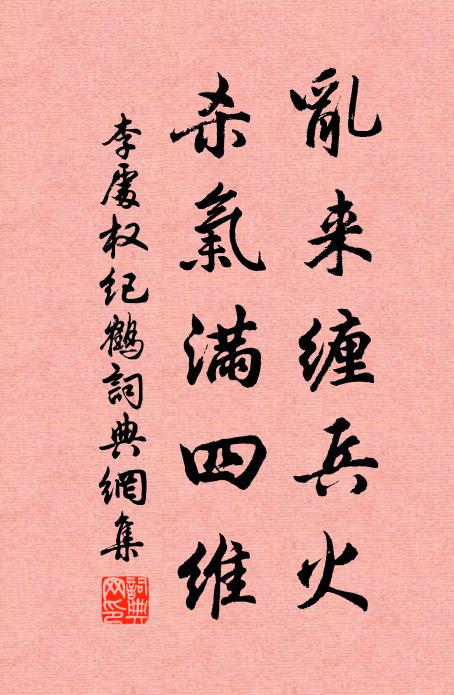 亂来缠兵火
杀氣满四维
李處权纪鶴詞典網集
詞典網印